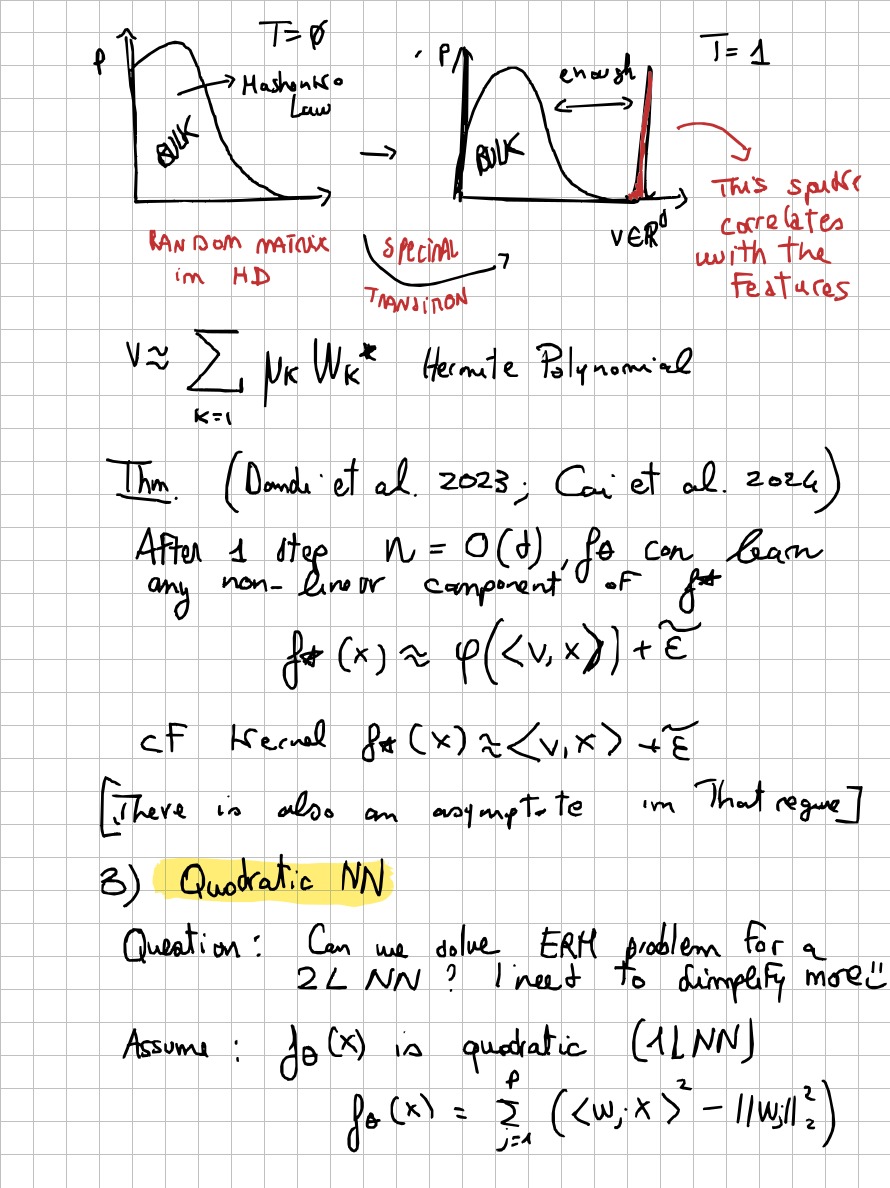 T=0
P
Law
BULK
RANDOM MATRIX
in HD
P
T=1
enough
BULK
v∈ℝᵈ
This spike
correlates
with the
Features
SPECTRAL
TRANSITION
V ≈ ∑_{K=1} μ_K W_K* Hermite Polynomial
Thm. (Dandi et al. 2023; Cui et al. 2024)
After 1 step n = O(d), f_θ can learn
any non-linear component of f⋆
f⋆(x) ≈ φ(<v,x>) + ε̃
cF Kernel f⋆(x) ≈ <v,x> + ε̃
[There is also an asymptote in That regime]
3) Quadratic NN
Question: Can we solve ERM problem for a
2L NN? I need to simplify more ☺
Assume: f_θ(x) is quadratic (1L NN)
f_θ(x) = ∑_{j=1}^{p} (<w_j·x>² - ||w_j||₂²)